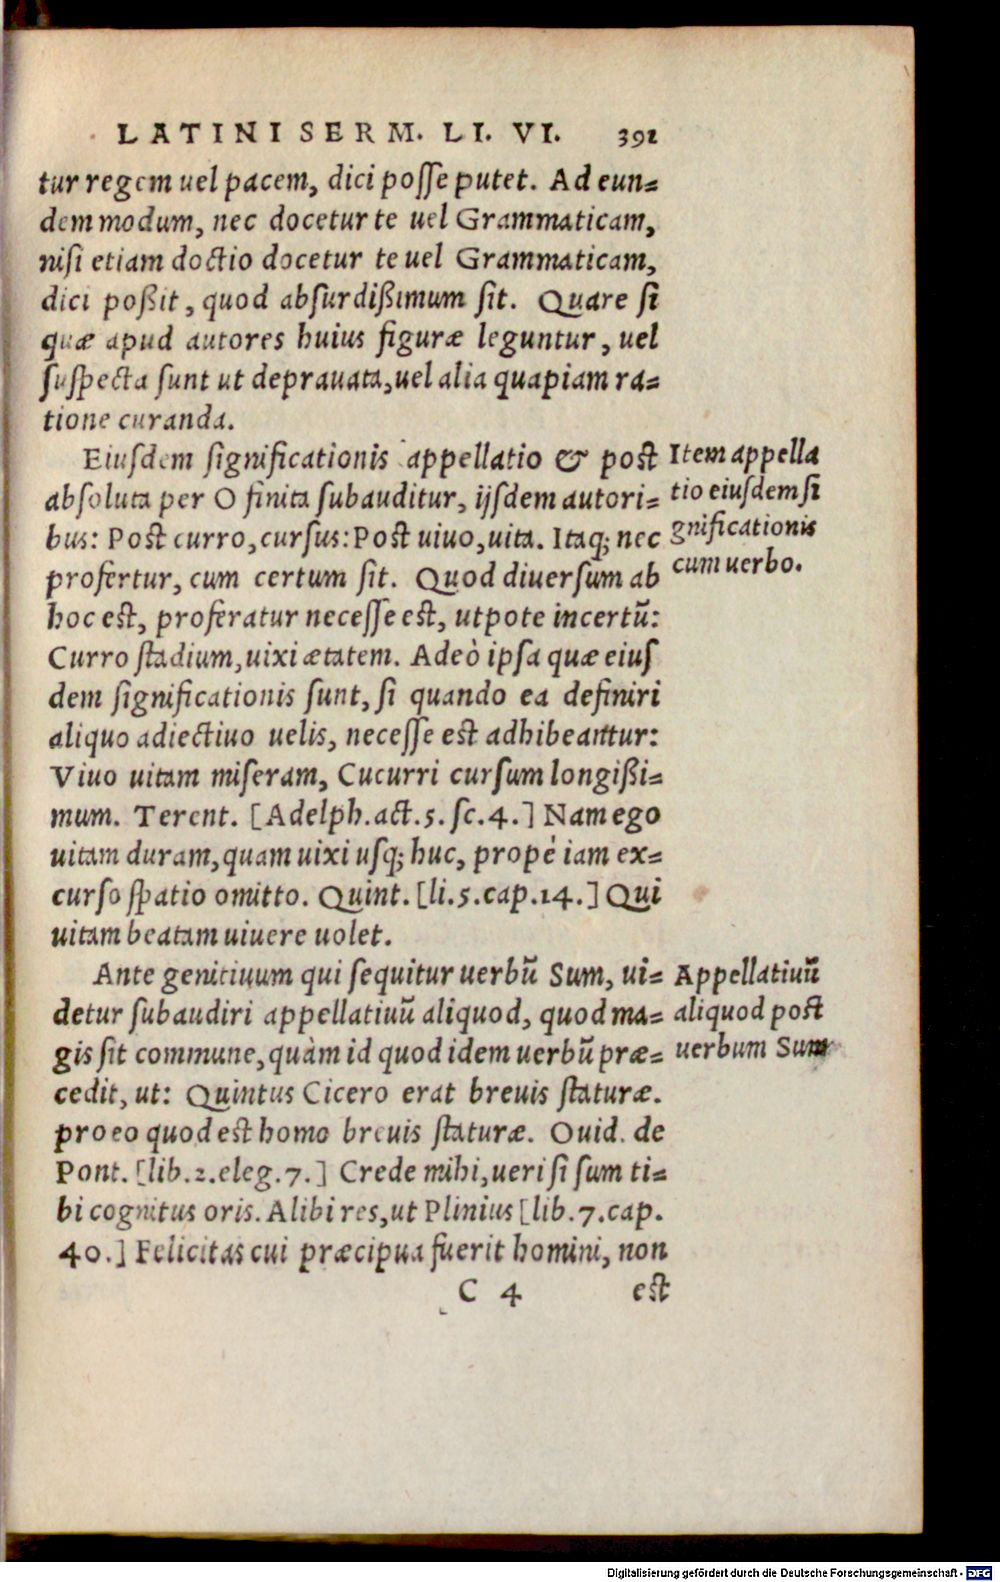 LATINI SERM. LI. VI. 391
tur regem uel pacem, dici posse putet. Ad eun-
dem modum, nec docetur te uel Grammaticam,
nisi etiam doctio docetur te uel Grammaticam,
dici poßit, quod absurdißimum sit. Quare si
quæ apud autores huius figuræ leguntur, uel
suspecta sunt ut deprauata, uel alia quapiam ra-
tione curanda.
Eiusdem significationis appellatio & post
absoluta per O finita subauditur, ijsdem autori-
bus: Post curro, cursus: Post uiuo, uita. Itaq; nec
profertur, cum certum sit. Quod diuersum ab
hoc est, proferatur necesse est, utpote incertũ:
Curro stadium, uixi ætatem. Adeò ipsa quæ eius
dem significationis sunt, si quando ea definiri
aliquo adiectiuo uelis, necesse est adhibeantur:
Viuo uitam miseram, Cucurri cursum longißi-
mum. Terent. [Adelph. act. 5. sc. 4.] Nam ego
uitam duram, quam uixi usq; huc, propè iam ex-
curso spatio omitto. Quint. [li. 5. cap. 14.] Qui
uitam beatam uiuere uolet.
Ante genitiuum qui sequitur uerbũ Sum, ui-
detur subaudiri appellatiuũ aliquod, quod ma-
gis sit commune, quàm id quod idem uerbũ præ-
cedit, ut: Quintus Cicero erat breuis staturæ.
pro eo quod est homo breuis staturæ. Ouid. de
Pont. [lib. 2. eleg. 7.] Crede mihi, ueri si sum ti-
bi cognitus oris. Alibi res, ut Plinius [lib. 7. cap.
40.] Felicitas cui præcipua fuerit homini, non
C 4 est
Item appella
tio eiusdem si
gnificationis
cum uerbo.
Appellatiuũ
aliquod post
uerbum Sum
Digitalisierung gefördert durch die Deutsche Forschungsgemeinschaft - DFG